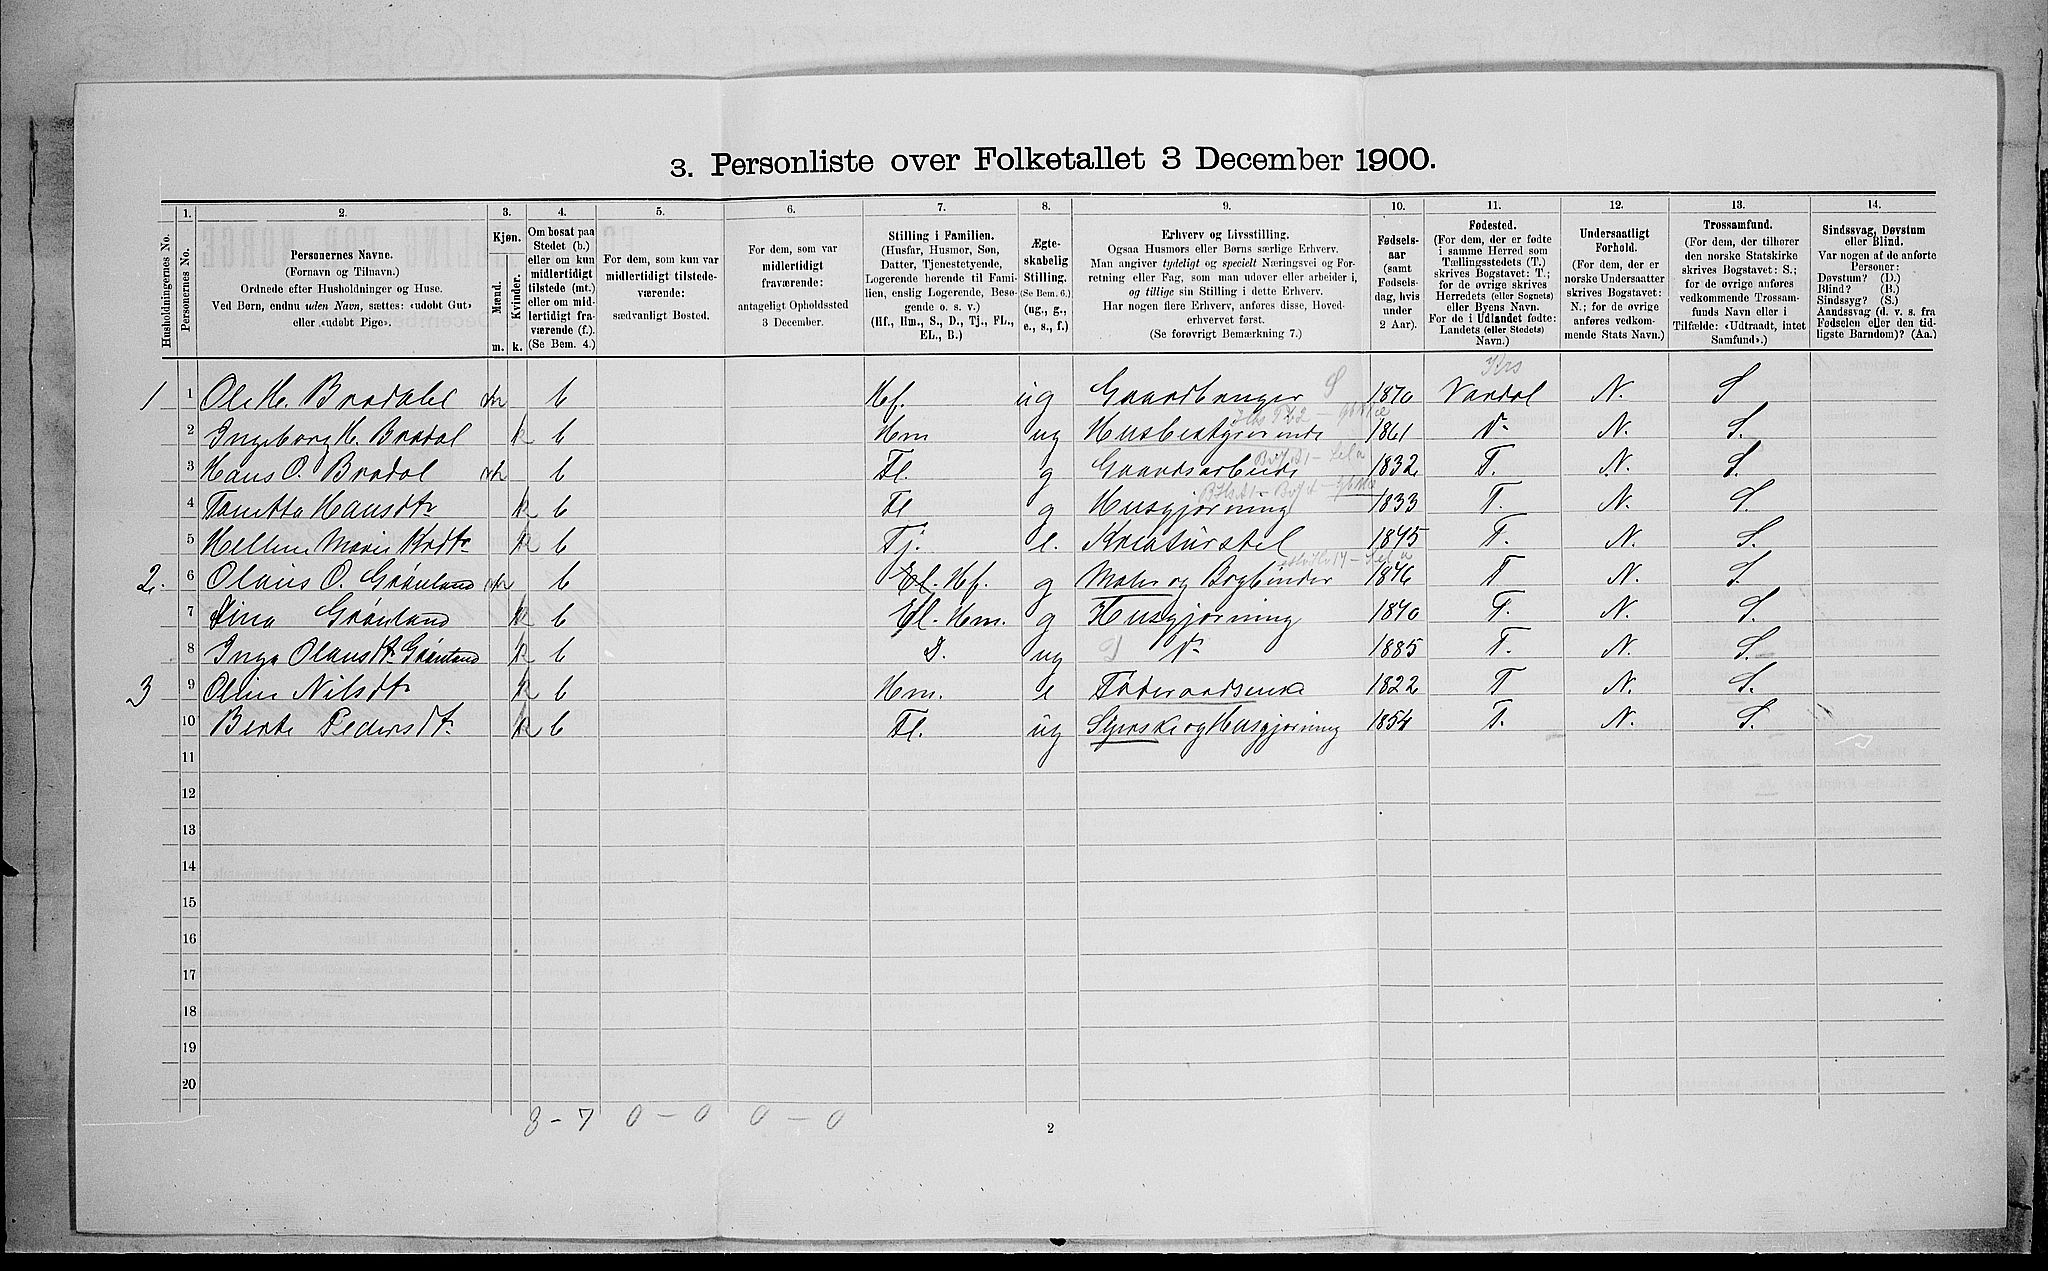 3. Personliste over Folketallet 3 December 1900.
1. 2. 3. 4. 5. 6. 7. 8. 9. 10. 11. 12. 13. 14.
Husholdningernes No.
Personernes No.
Personernes Navne.
(Fornavn og Tilnavn.)
Ordnede efter Husholdninger og Huse.
Ved Børn, endnu uden Navn, sættes: «udøbt Gut»
eller «udøbt Pige».
Kjøn.
Mænd.
Kvinder.
m. k.
Om bosat paa
Stedet (b.)
eller om kun
midlertidigt
tilstede (mt.)
eller om mid-
lertidigt fra-
værende (f.).
(Se Bem. 4.)
For dem, som kun var
midlertidigt tilstede-
værende:
sædvanligt Bosted.
For dem, som var
midlertidigt
fraværende:
antageligt Opholdssted
3 December.
Stilling i Familien.
(Husfar, Husmor, Søn,
Datter, Tjenestetyende,
Logerende hørende til Fami-
lien, enslig Logerende, Besø-
gende o. s. v.)
(Hf., Hm., S., D., Tj., FL.,
EL., B.)
Ægte-
skabelig
Stilling.
(Se Bem. 6.)
(ug., g.,
e., s., f.)
Erhverv og Livsstilling.
Ogsaa Husmors eller Børns særlige Erhverv.
Man angiver tydeligt og specielt Næringsvei og For-
retning eller Fag, som man udøver eller arbeider i,
og tillige sin Stilling i dette Erhverv.
Har nogen flere Erhverv, anføres disse, Hoved-
erhvervet først.
(Se forøvrigt Bemærkning 7.)
Fødsels-
aar
(samt
Fødsels-
dag, hvis
under
2 Aar).
Fødested.
(For dem, der er fødte
i samme Herred som
Tællingsstedets (T.)
skrives Bogstavet: T.;
for de øvrige skrives
Herredets (eller Sognets)
eller Byens Navn.
For de i Udlandet fødte:
Landets (eller Stedets)
Navn.)
Undersaatligt
Forhold.
(For dem, der er
norske Undersaatter
skrives Bogstavet:
N.; for de øvrige
anføres vedkom-
mende Stats Navn.)
Trossamfund.
(For dem, der tilhører
den norske Statskirke
skrives Bogstavet: S.;
for de øvrige anføres
vedkommende Trossam-
funds Navn eller i
Tilfælde: «Udtraadt, intet
Samfund».)
Sindssvag, Døvstum
eller Blind.
Var nogen af de anførte
Personer:
Døvstum? (D.)
Blind? (B.)
Sindssyg? (S.)
Aandssvag (d. v. s. fra
Fødselen eller den tid-
ligste Barndom)? (Aa.)
Krs
1 1 Ole H. Bradahl m b Hf. ug Gaardbruger S 1870 Vardal N. S
2 Ingeborg H. Bradal k b Hm ug Husbestyrerinde 1861 D° N. S.
3 Hans O. Bradal m b Fl. g Gaardsarbeide 1832 T. N. S.
4 Tonetta Hansdtr k b Fl g Husgjørning 1833 T. N. S.
5 Hellene Marie k b Tj. e. Kreaturstel 1845 T. N. S.
2. 6 Olaus O. Grønland m b El. Hf. g Maler og Bogbinder 1846 T N. S.
7 Lina Grønland k b El. Hm. g Husgjørning 1840 T. N. S.
8 Inga Olausdtr Grønland k b D. ug D D° 1885 T. N. S.
3 9 Oline Nilsdtr k b Hm. e Føderaadsenke 1822 T N. S.
10 Berte Pedersdtr k b Fl. ug Syerske og Husgjørning 1854 T. N. S.
11
12
13
14
15
16
17
18
19
20
3 - 7 0 - 0 0 - 0
2